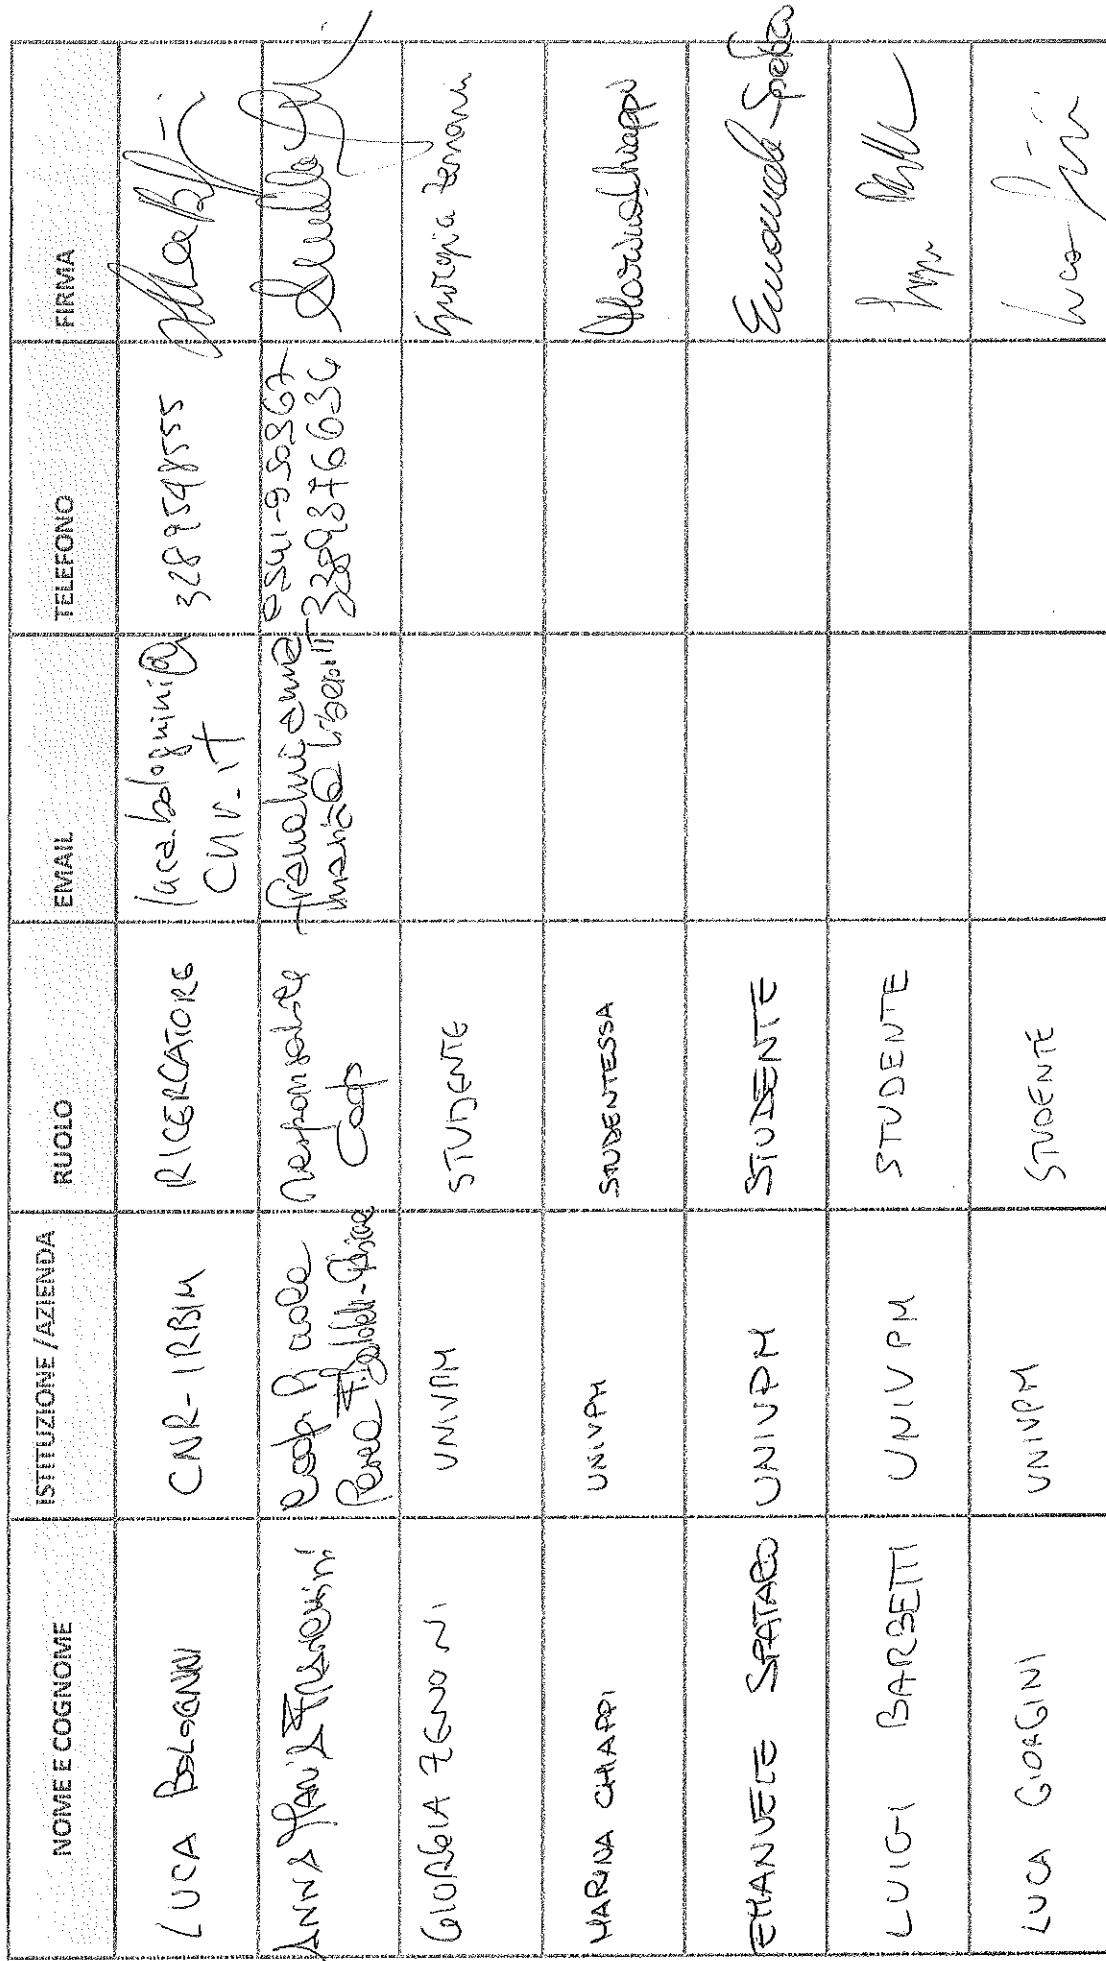 NOME E COGNOME ISTITUZIONE /AZIENDA RUOLO EMAIL TELEFONO FIRMA
LUCA BOLOGNINI CNR-IRBIM RICERCATORE luca.bolognini@ 3289548555
CNR.IT
ANNA MARIA FRANCHINI Coop responsabile 0541-950367
Pesca Coop maria@libero.it
GIORGIA ZENONI UNIVPM STUDENTE Giorgia Zenoni
MARINA CHIAPPI UNIVPM STUDENTESSA Marina Chiappi
EMANUELE SPATARO UNIVPM STUDENTE Emanuele Spataro
LUIGI BARBETTI UNIVPM STUDENTE
LUCA GIORGINI UNIVPM STUDENTE Luca